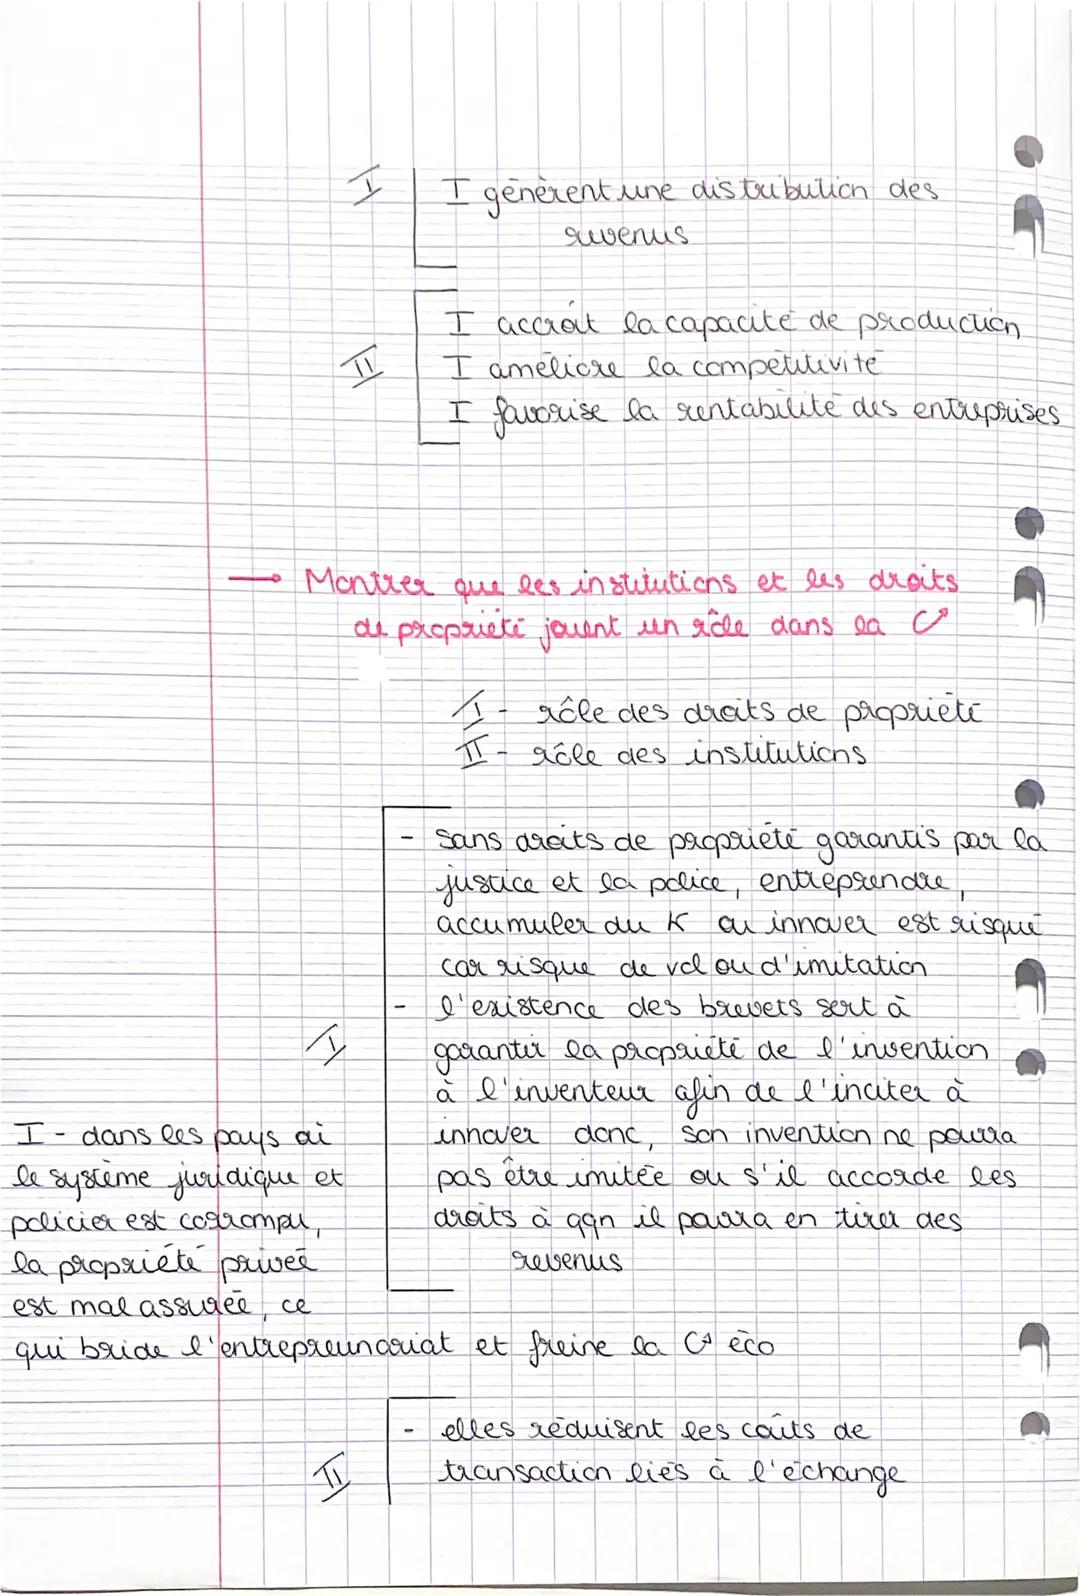 I
I génèrent une distribution des
revenus
II
I accroît la capacité de production
I améliore la compétitivité
I favorise la rentabilité des entreprises
→ Montrer que les institutions et les droits
de propriété jouent un rôle dans la C↗
I - rôle des droits de propriété
II - rôle des institutions
I
- sans droits de propriété garantis par la
justice et la police, entreprendre,
accumuler du K ou innover est risqué
car risque de vol ou d'imitation
- l'existence des brevets sert à
garantir la propriété de l'invention
à l'inventeur afin de l'inciter à
innover donc, son invention ne pourra
pas être imitée ou s'il accorde les
droits à qqn il pourra en tirer des
revenus
I - dans les pays où
le système juridique et
policier est corrompu,
la propriété privée
est mal assurée, ce
qui bride l'entrepreunariat et freine la C↗ éco
II
- elles réduisent les coûts de
transaction liés à l'échange